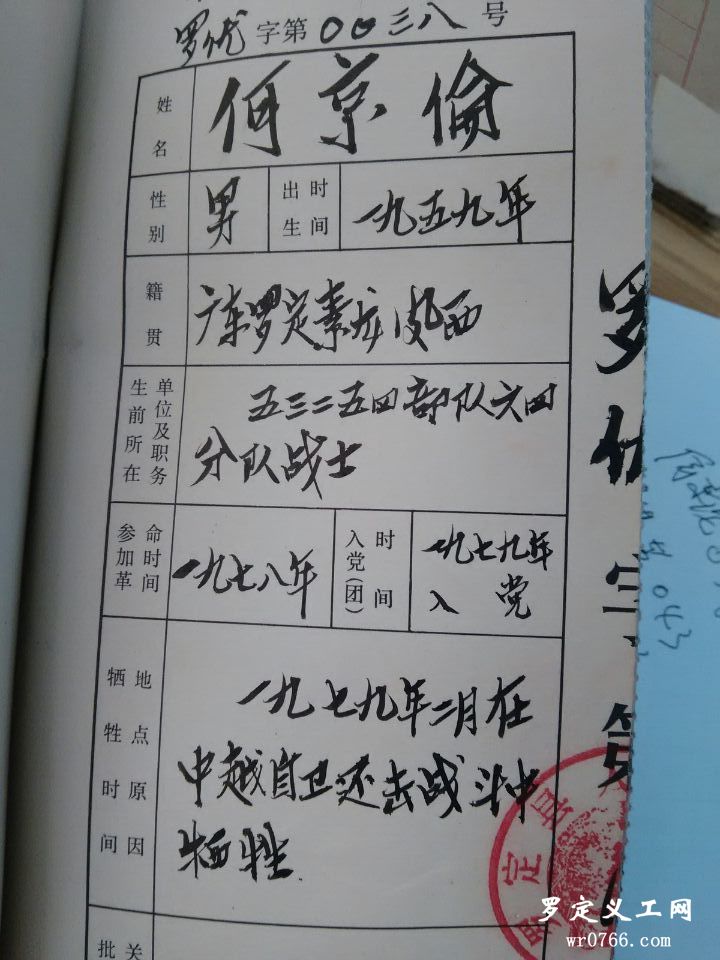 罗优字第00三八号
姓名
何景倫
性别
男
出生时间
一九五九年
籍贯
广东罗定素龙凤西
生前所在单位及职务
五三二五四部队六四
分队战士
参加革命时间
一九七八年
入党(团)时间
一九七九年
入党
牺牲时间地点原因
一九七九年二月在
中越自卫还击战斗中
牺牲
批
关
罗
字第
043
罗定县
罗定义工网
wr0766.com